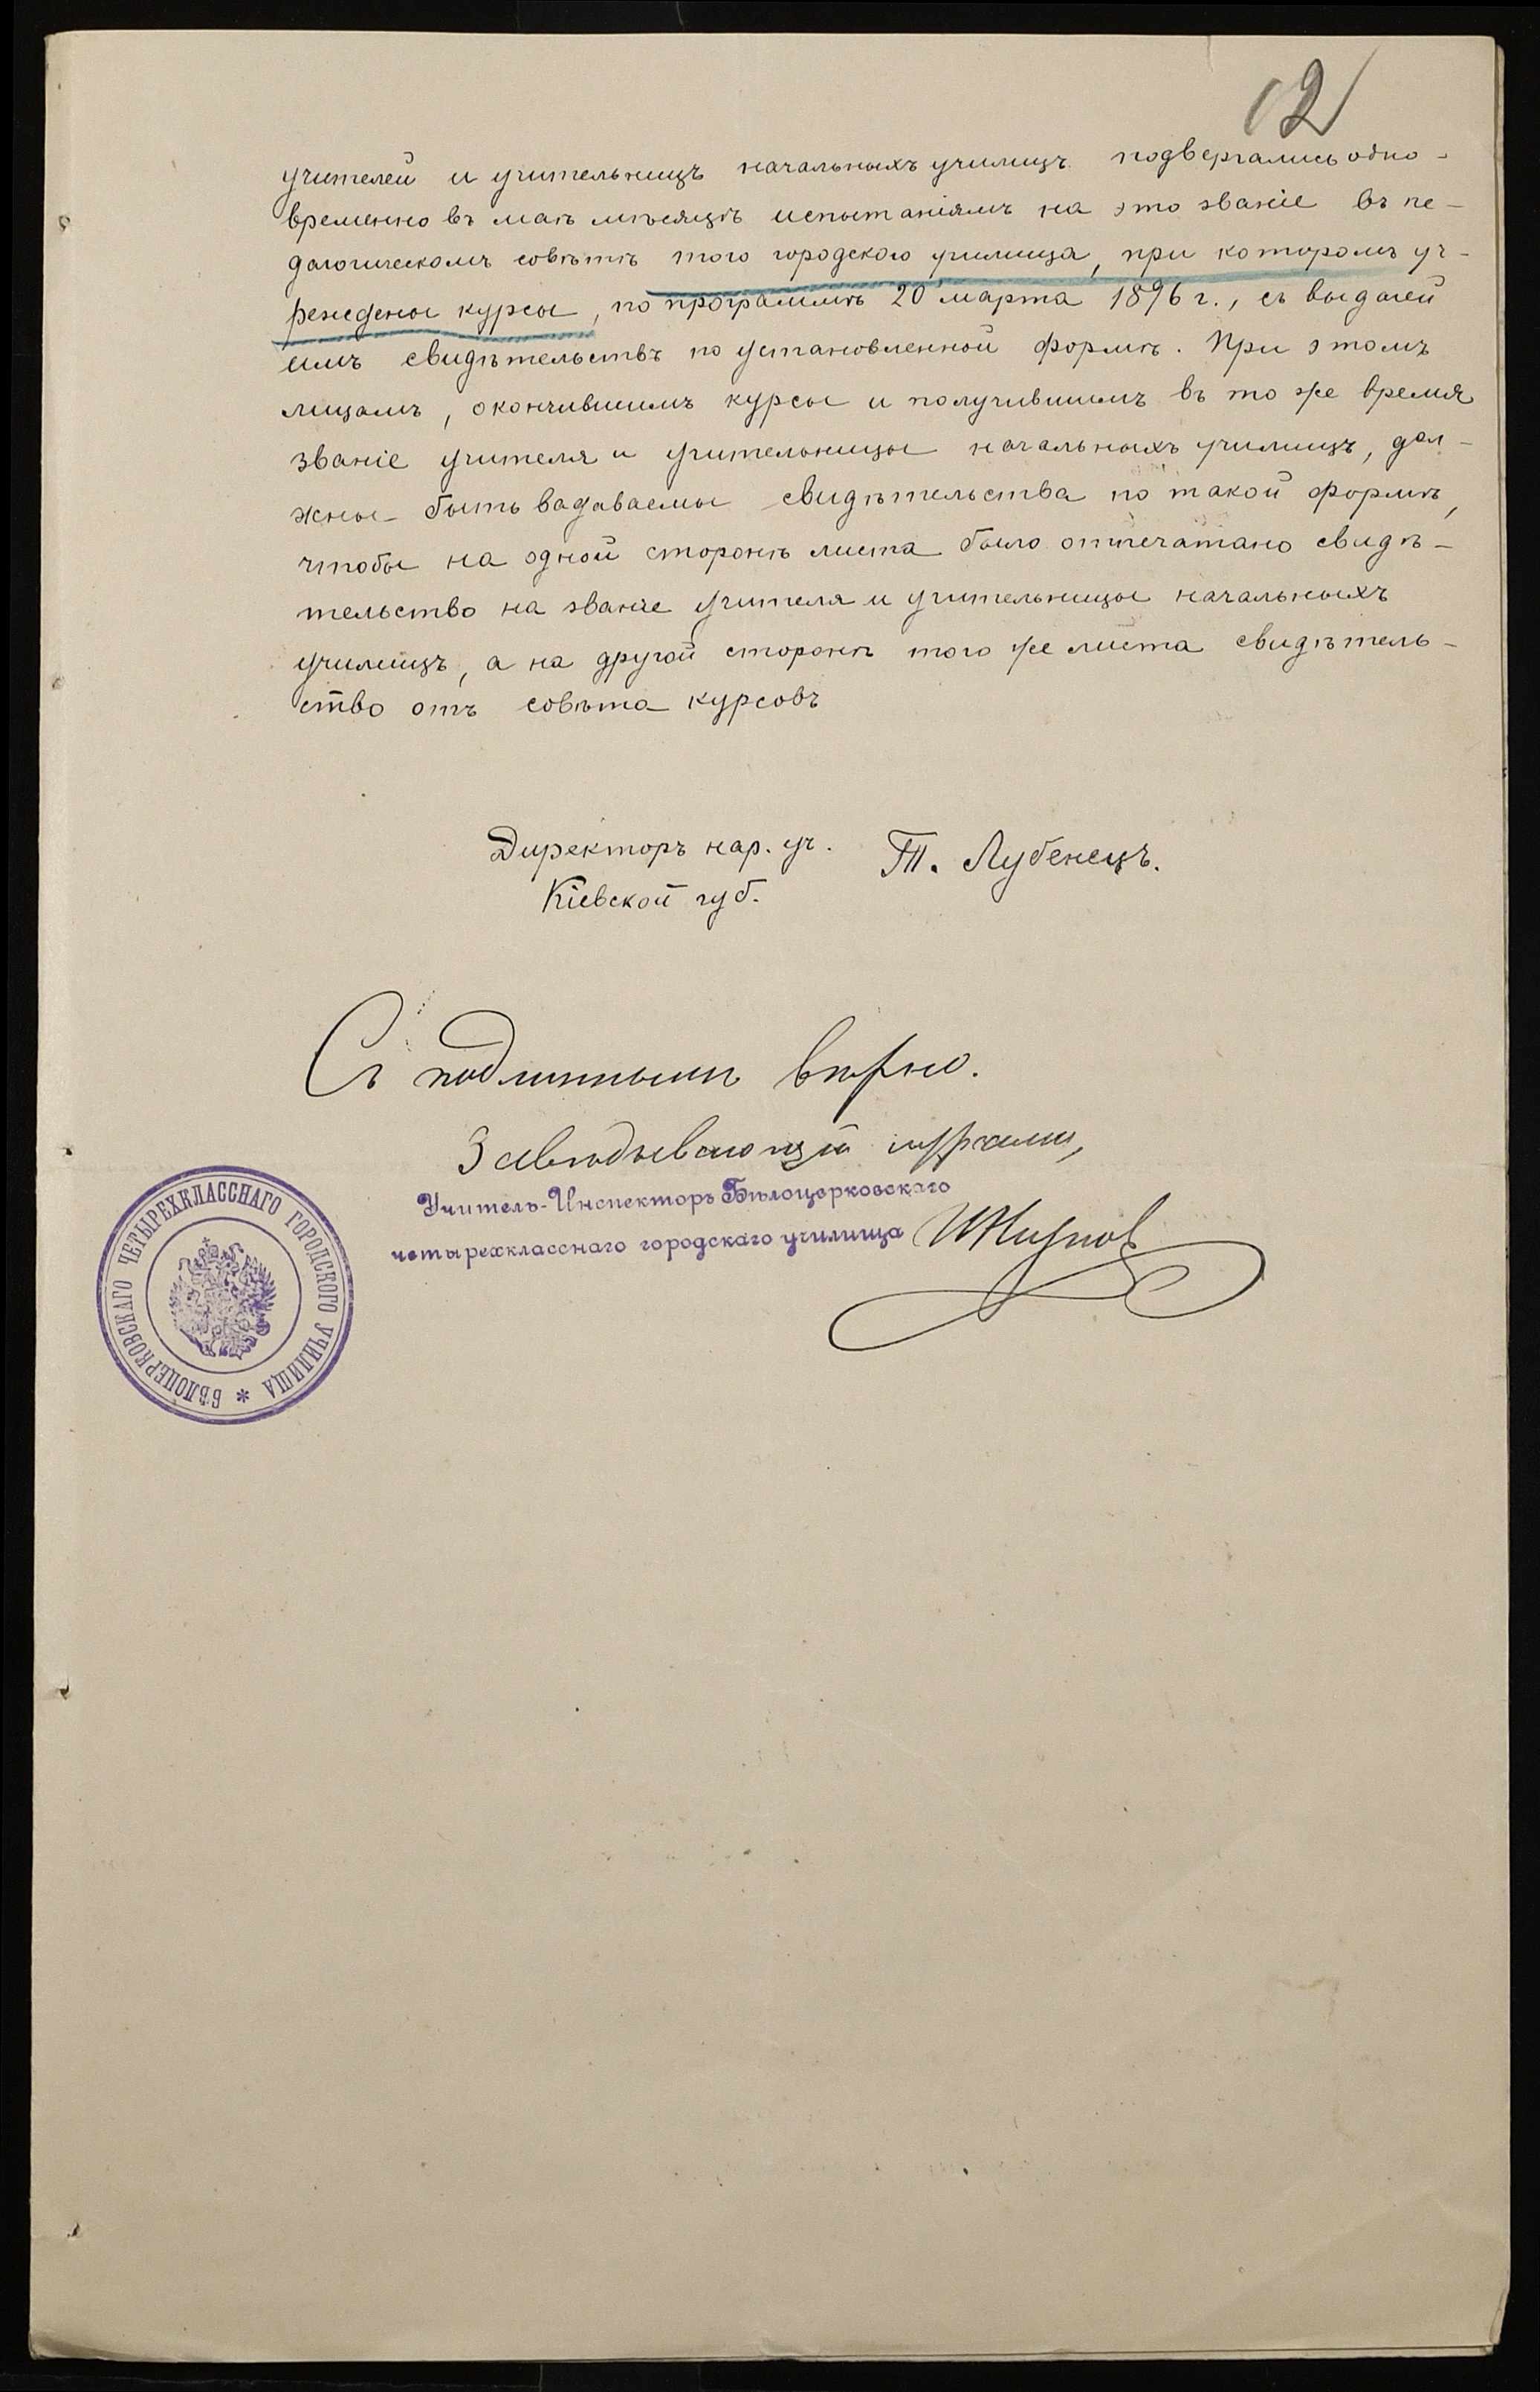 12
учителей и учительницъ начальныхъ училищъ подвергались одно-
временно въ маѣ мѣсяцѣ испытаніямъ на это званіе въ пе-
дагогическомъ совѣтѣ того городского училища, при которомъ уч-
реждены курсы, по программѣ 20 марта 1896 г., съ выдачей
имъ свидѣтельствъ по установленной формѣ. При этомъ
лицамъ, окончившимъ курсы и получившимъ въ то же время
званіе учителя и учительницы начальныхъ училищъ, дол-
жны быть вадаваемы свидѣтельства по такой формѣ,
чтобы на одной сторонѣ листа было отпечатано свидѣ-
тельство на званіе учителя и учительницы начальныхъ
училищъ, а на другой сторонѣ того же листа свидѣтель-
ство отъ совѣта курсовъ
Директоръ нар. уч. Т. Лубенецъ.
Кіевской губ.
Съ подлиннымъ вѣрно.
Завѣдывающій курсами,
Учитель-Инспекторъ Бѣлоцерковскаго
четырехкласснаго городскаго училища
БѢЛОЦЕРКОВСКАГО ЧЕТЫРЕХКЛАССНАГО ГОРОДСКОГО УЧИЛИЩА *